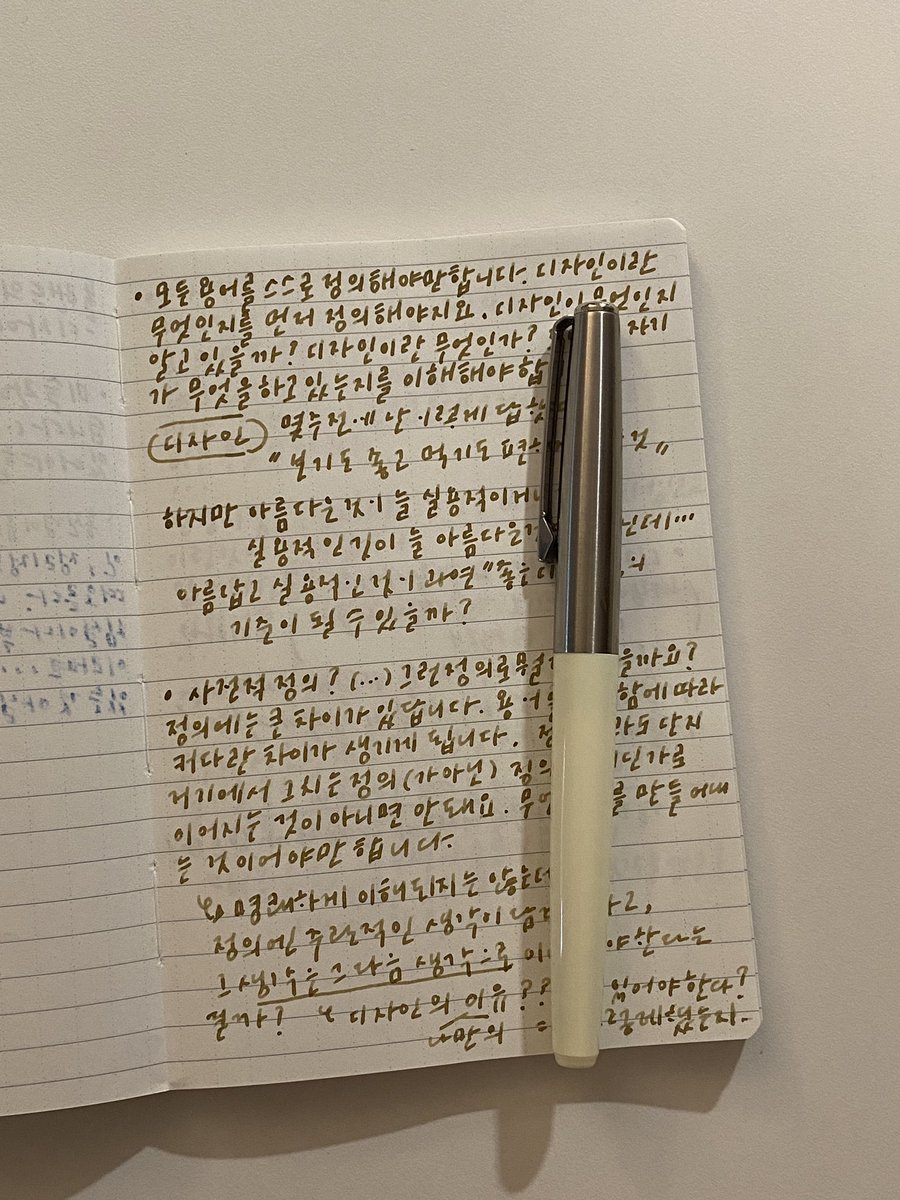 • 모든 용어를 스스로 정의해야만합니다. 디자인이란
무엇인지를 먼저 정의해야지요. 디자인이 무엇인지
알고 있을까? 디자인이란 무엇인가? 자기
가 무엇을하고 있는지를 이해해야합
디자인 몇주전에 난 이렇게 답했
"보기도 좋고 먹기도 편한 것"
하지만 아름다운것이 늘 실용적이거나
실용적인것이 늘 아름다운 닌데...
아름답고 실용적인것이 과연 "좋은디 의
기준이 될 수 있을까?
• 사전적 정의? (...) 그런정의로 을까요?
정의에는 큰 차이가 있답니다. 용어 함에 따라
커다란 차이가 생기게 됩니다. 라도 단지
거기에서 그치는 정의(가아닌) 정의 딘가로
이어지는 것이 아니면 안돼요. 를 만들어내
는 것이어야만 합니다.
↳ 명쾌하게 이해되지는 않는데
정의엔 주관적인 생각이 고,
그 생각은 그 다음 생각으로 야한다는
걸까? ↳ 디자인의 이유?? 있어야한다?
나만의